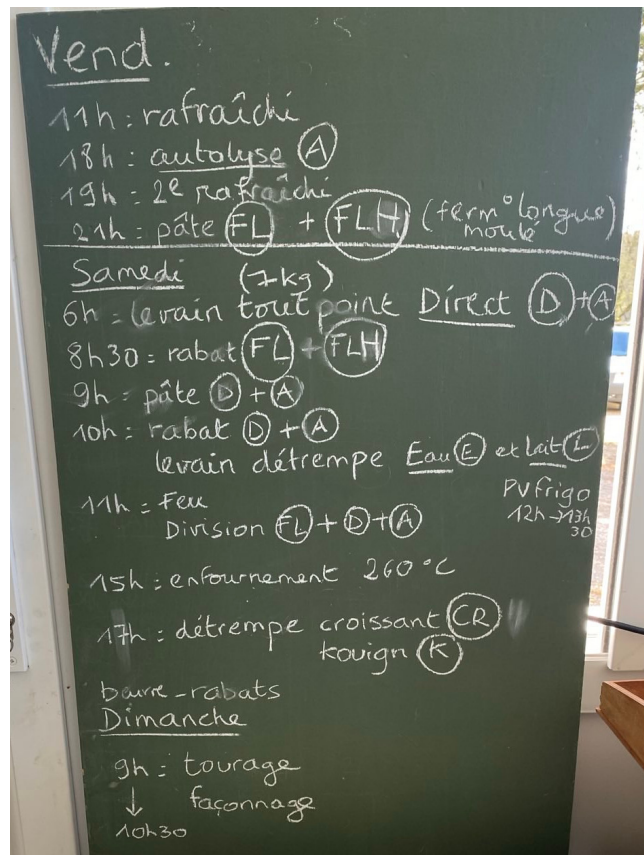 Vend.
11h : rafraîchi
18h : autolyse A
19h : 2e rafraîchi
21h : pâte FL + FLH (ferm° longue
moulé)
Samedi (7kg)
6h = levain tout point Direct D + A
8h30 = rabat FL + FLH
9h = pâte D + A
10h = rabat D + A
levain détrempe Eau E et lait L
11h = Feu
Division FL + D + A
PV frigo
12h → 13h
30
15h : enfournement 260°C
17h : détrempe croissant CR
kouign K
rabats
Dimanche
9h = tourage
↓ façonnage
10h30